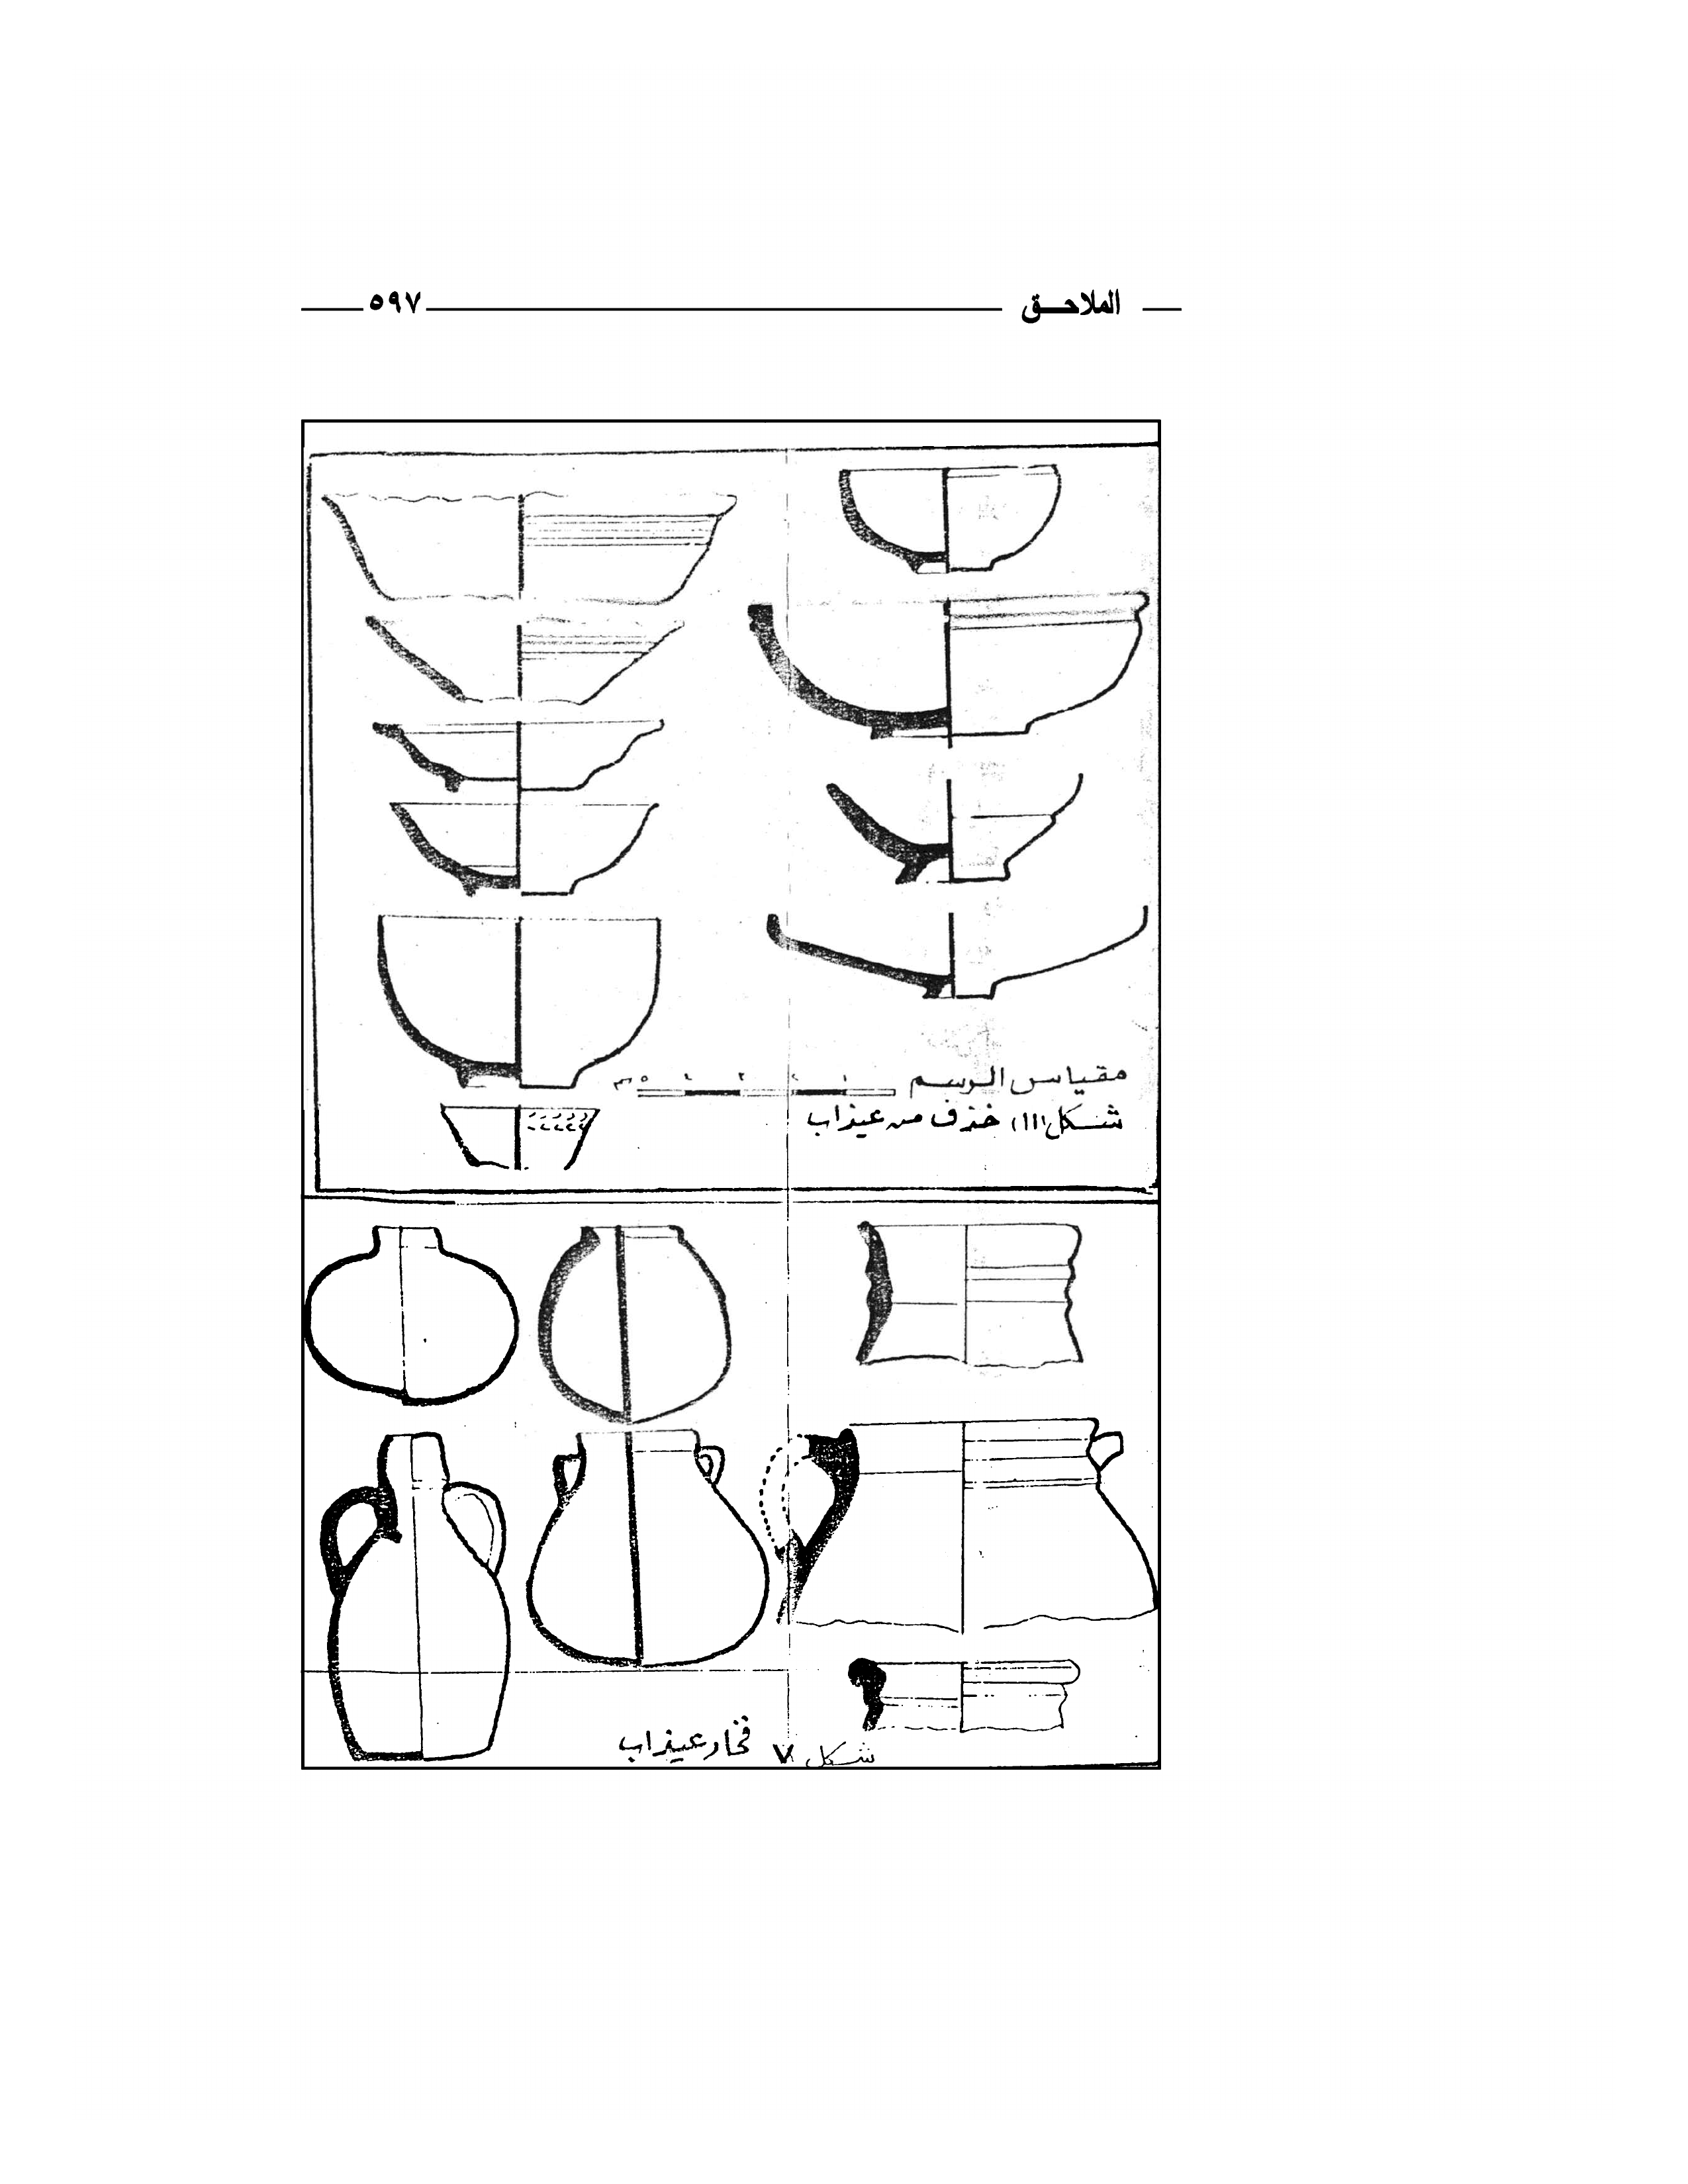 الملاحـــق ٥٩٧
مقياس الرسم ١ ٢ ٣ ٤ ٥ سم
شكل (١١١) خذف من عيذاب
شكل ٧ فخار عيذاب